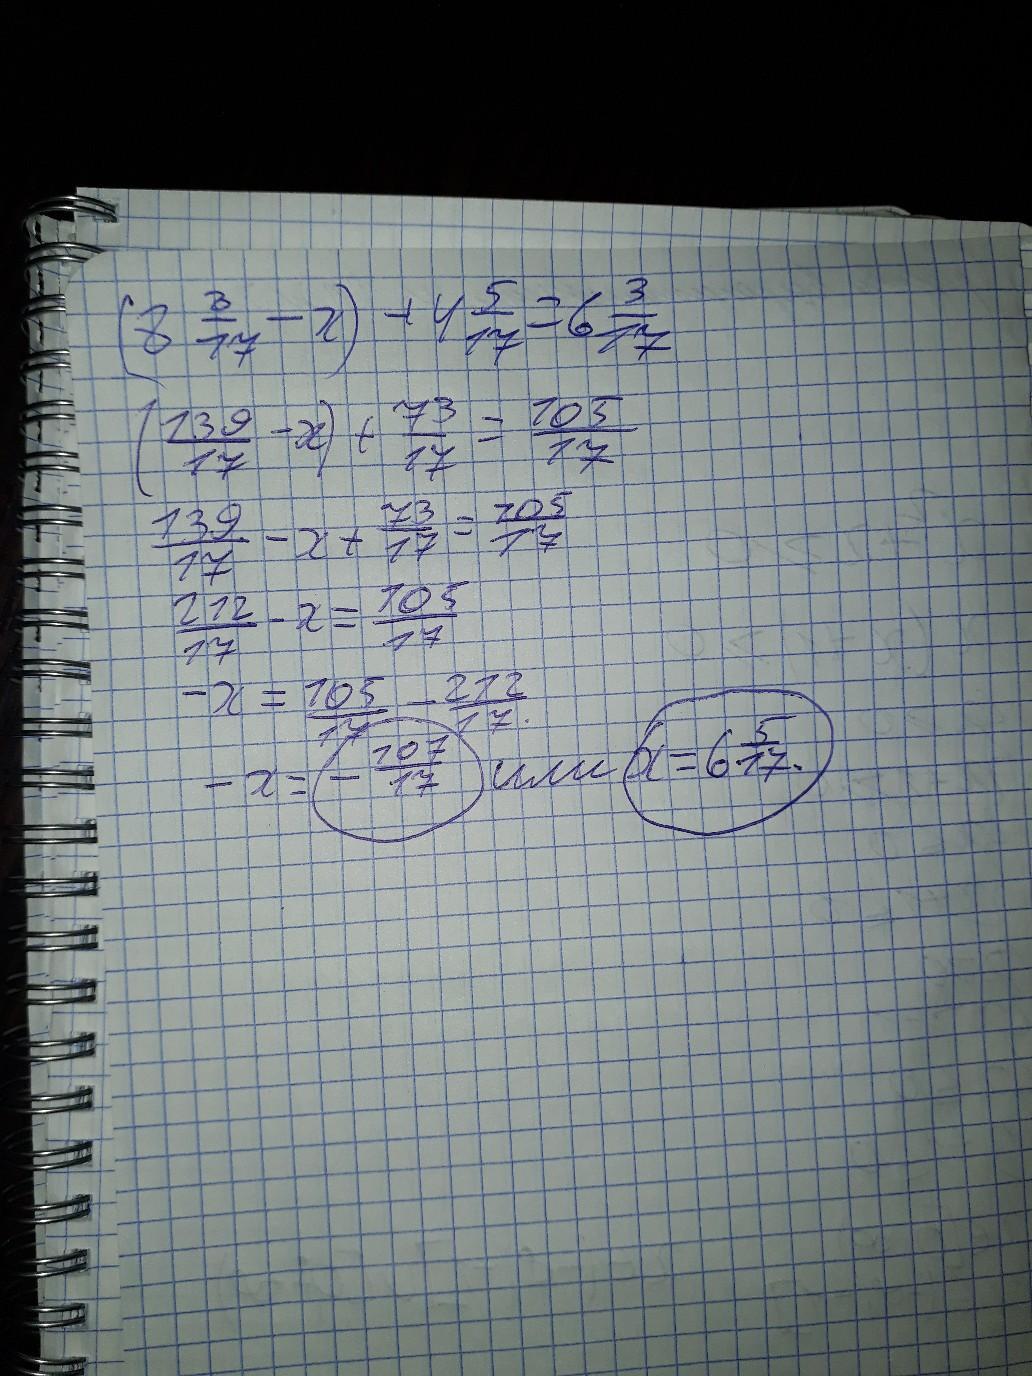 (8 3/17 - x) + 4 5/17 = 6 3/17
(139/17 - x) + 73/17 = 105/17
139/17 - x + 73/17 = 105/17
212/17 - x = 105/17
-x = 105/17 - 212/17.
-x = -107/17 или x = 6 5/17.